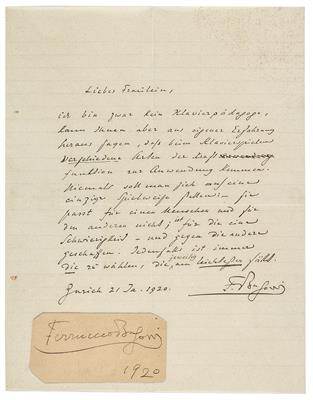 Liebes Fräulein,
ich bin zwar kein Klavierpädagoge,
kann Ihnen aber aus eigener Erfahrung
heraus sagen, daß beim Klavierspielen
verschiedene Arten der Kraft
funktion zur Anwendung kommen.
Niemals soll man sich auf eine
einzige Spielweise stellen: – sie
passt für einen Menschen und für
den anderen nicht, ist für die eine
Schwierigkeit – und gegen die andere
geschaffen. Jedenfalls ist immer
die zu wählen, die jeweilig am leichtesten fällt.
Zürich 21 Ja. 1920.
F. Busoni
Ferruccio Busoni
1920